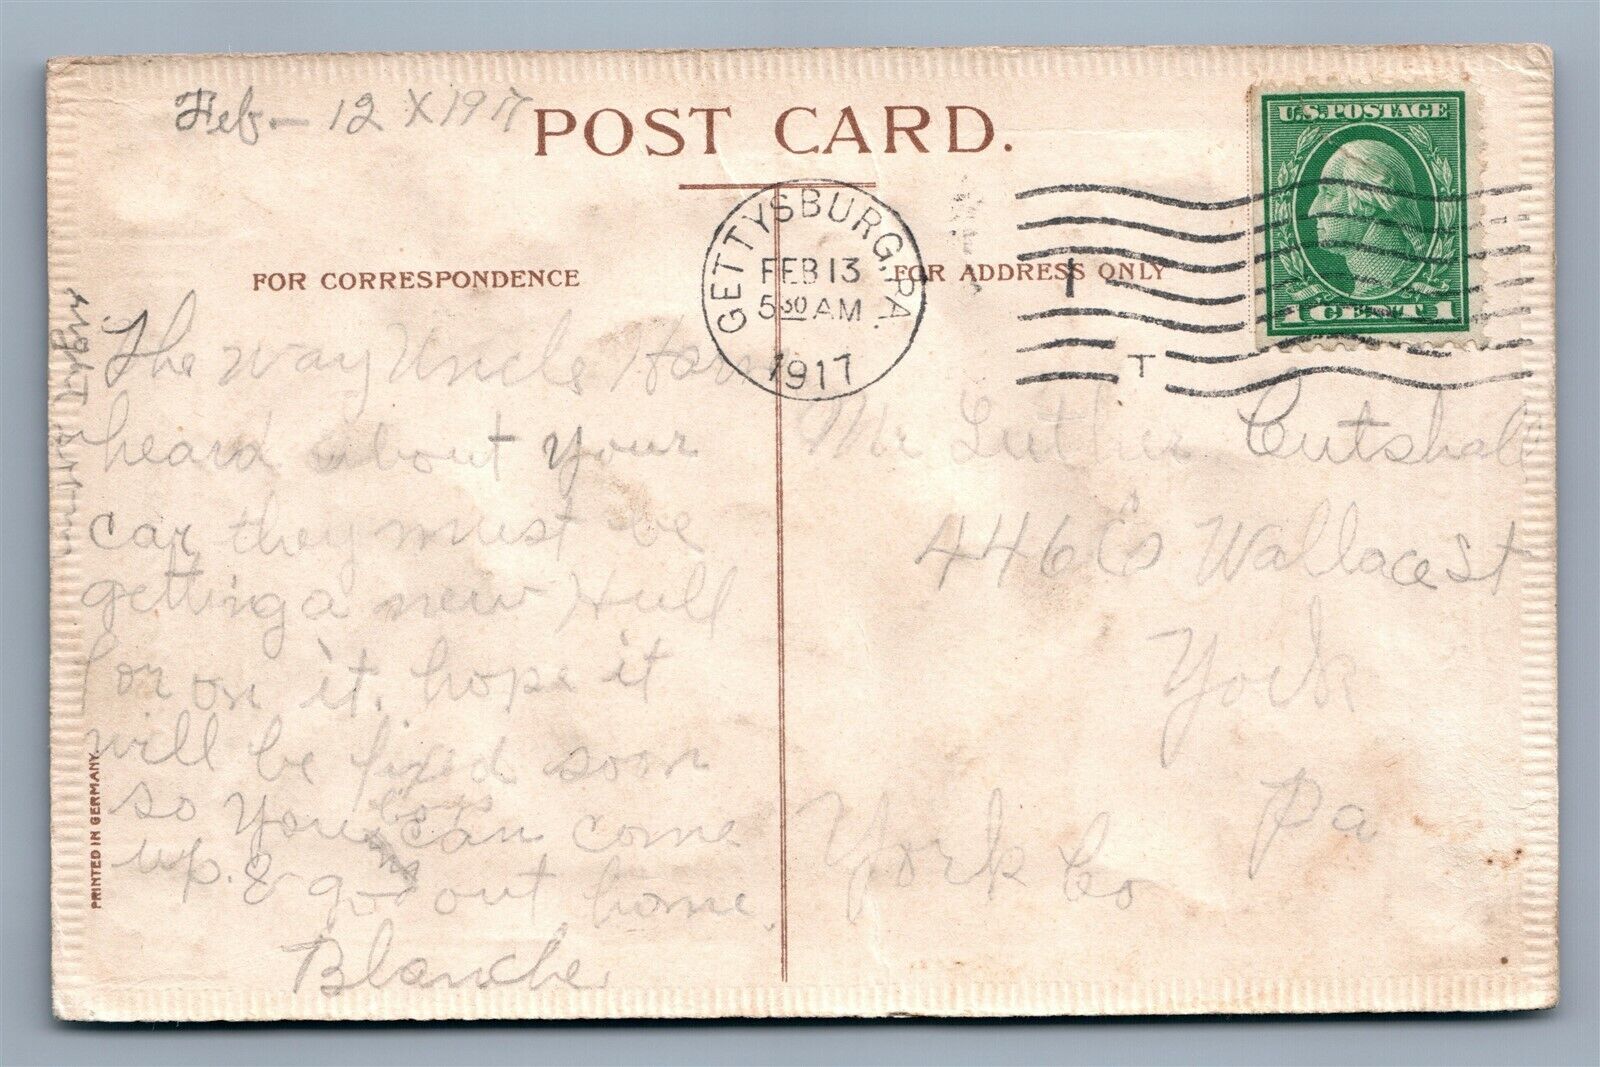 Feb - 12 X 1917
POST CARD.
GETTYSBURG, PA.
FEB 13
5 30 AM
1917
T
U.S. POSTAGE
1 CENT 1
FOR CORRESPONDENCE
FOR ADDRESS ONLY
The way Uncle
heard about your
car, they must be
getting a new Hull
for on it. hope it
will be fixed soon
so you boys can come
up. & go out home.
Blanche
Mr Luther Cutshall
446 Wallace St
York
Pa
York Co
PRINTED IN GERMANY